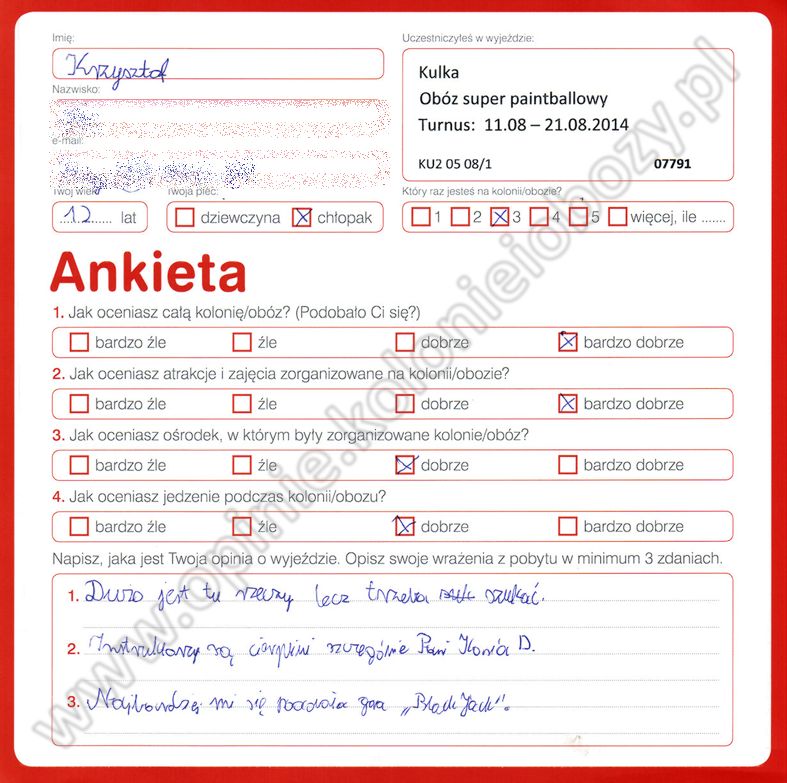 Imię:
Krzysztof
Nazwisko:
e-mail:
Twój wiek:
12 lat
Twoja płeć:
dziewczyna chłopak
Uczestniczyłeś w wyjeździe:
Kulka
Obóz super paintballowy
Turnus: 11.08 – 21.08.2014
KU2 05 08/1 07791
Który raz jesteś na kolonii/obozie?
1 2 3 4 5 więcej, ile .......
Ankieta
1. Jak oceniasz całą kolonię/obóz? (Podobało Ci się?)
bardzo źle źle dobrze bardzo dobrze
2. Jak oceniasz atrakcje i zajęcia zorganizowane na kolonii/obozie?
bardzo źle źle dobrze bardzo dobrze
3. Jak oceniasz ośrodek, w którym były zorganizowane kolonie/obóz?
bardzo źle źle dobrze bardzo dobrze
4. Jak oceniasz jedzenie podczas kolonii/obozu?
bardzo źle źle dobrze bardzo dobrze
Napisz, jaka jest Twoja opinia o wyjeździe. Opisz swoje wrażenia z pobytu w minimum 3 zdaniach.
1. Dużo jest tu rzeczy lecz trzeba szukać.
2. Instruktorzy są cierpliwi szczególnie Pani D.
3. Najbardziej mi się podobała gra „Black Jack".
www.opinie.kolonieiobozy.pl